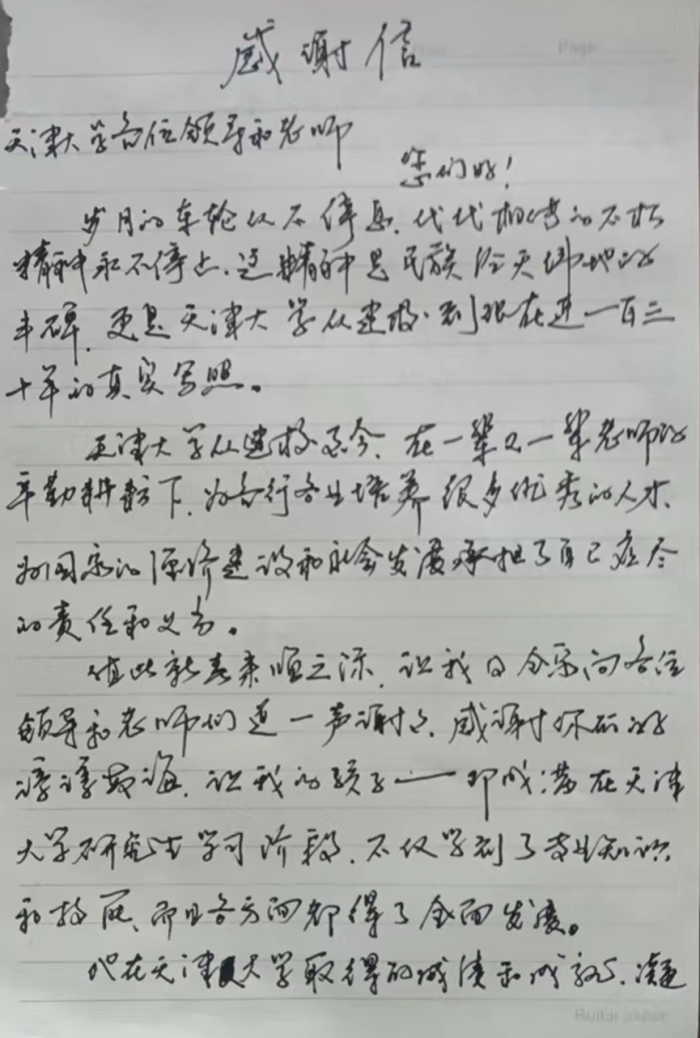 感谢信
天津大学各位领导和老师
您们好!
岁月的车轮从不停息,代代相传的不朽
精神永不停止,这精神是民族顶天绑地的
丰碑,更是天津大学从建校到现在近一百三
十年的真实写照。
天津大学从建校至今,在一辈又一辈老师的
辛勤耕耘下,为各行各业培养很多优秀的人才,
为国家的经济建设和社会发展承担了自己应尽
的责任和义务。
值此新春来临之际,让我及全家向各位
领导和老师们道一声谢谢,感谢你们的
谆谆教诲,让我的孩子——邓成潜在天津
大学研究生学习阶段,不仅学到了专业知识
和技能,而且各方面都得了全面发展。
他在天津大学取得的成绩和成就,凝
Ruitai paper